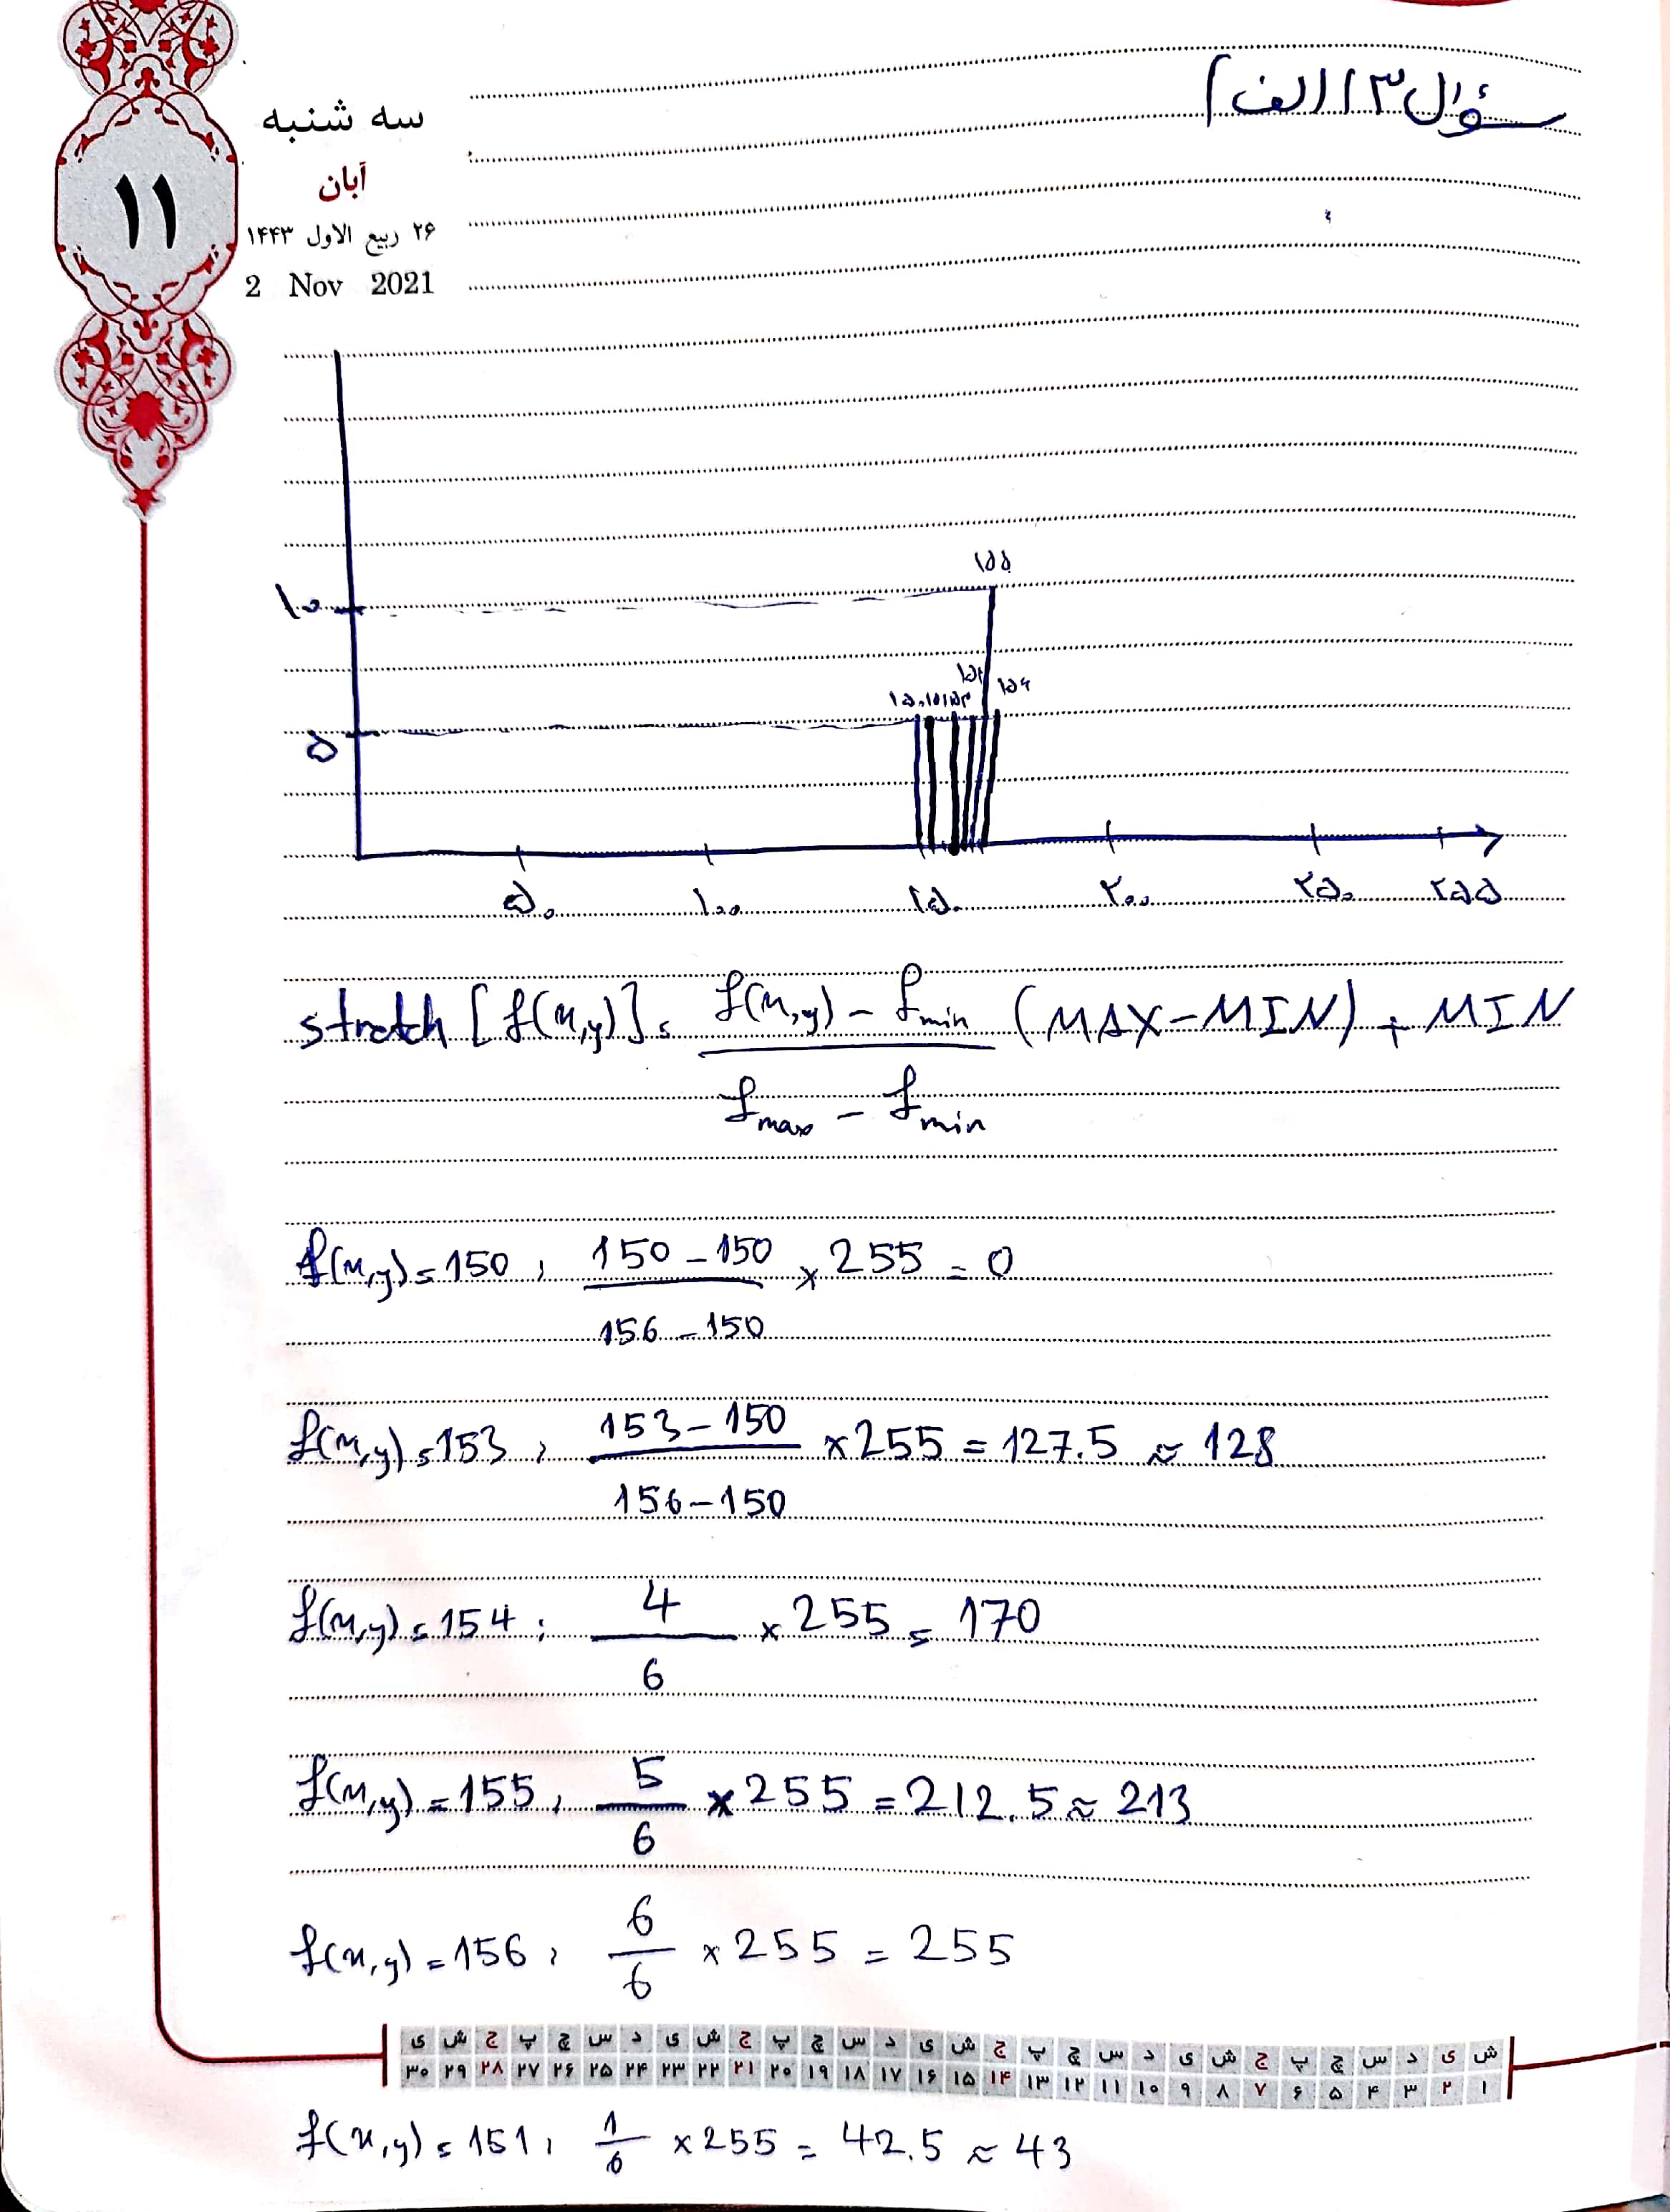 سؤال ۳) الف)
سه شنبه
آبان
۱۱
۲۶ ربیع الاول ۱۴۴۳
2 Nov 2021
۱۵۵
۱۰
۱۵۴ ۱۵۶
۱۵۰ ۱۵۱ ۱۵۳
۵
۵۰ ۱۰۰ ۱۵۰ ۲۰۰ ۲۵۰ ۲۵۵
stretch [f(x,y)] = f(x,y) - fmin (MAX-MIN) + MIN
fmax - fmin
f(x,y) = 150 , 150 - 150 × 255 = 0
156 - 150
f(x,y) = 153 , 153 - 150 × 255 = 127.5 ≈ 128
156 - 150
f(x,y) = 154 ; 4 × 255 = 170
6
f(x,y) = 155 , 5 × 255 = 212.5 ≈ 213
6
f(x,y) = 156 , 6 × 255 = 255
6
ش ی د س چ پ ج ش ی د س چ پ ج ش ی د س چ پ ج ش ی د س چ پ ج ش ی
۱ ۲ ۳ ۴ ۵ ۶ ۷ ۸ ۹ ۱۰ ۱۱ ۱۲ ۱۳ ۱۴ ۱۵ ۱۶ ۱۷ ۱۸ ۱۹ ۲۰ ۲۱ ۲۲ ۲۳ ۲۴ ۲۵ ۲۶ ۲۷ ۲۸ ۲۹ ۳۰
f(x,y) = 151 , 1 × 255 = 42.5 ≈ 43
6